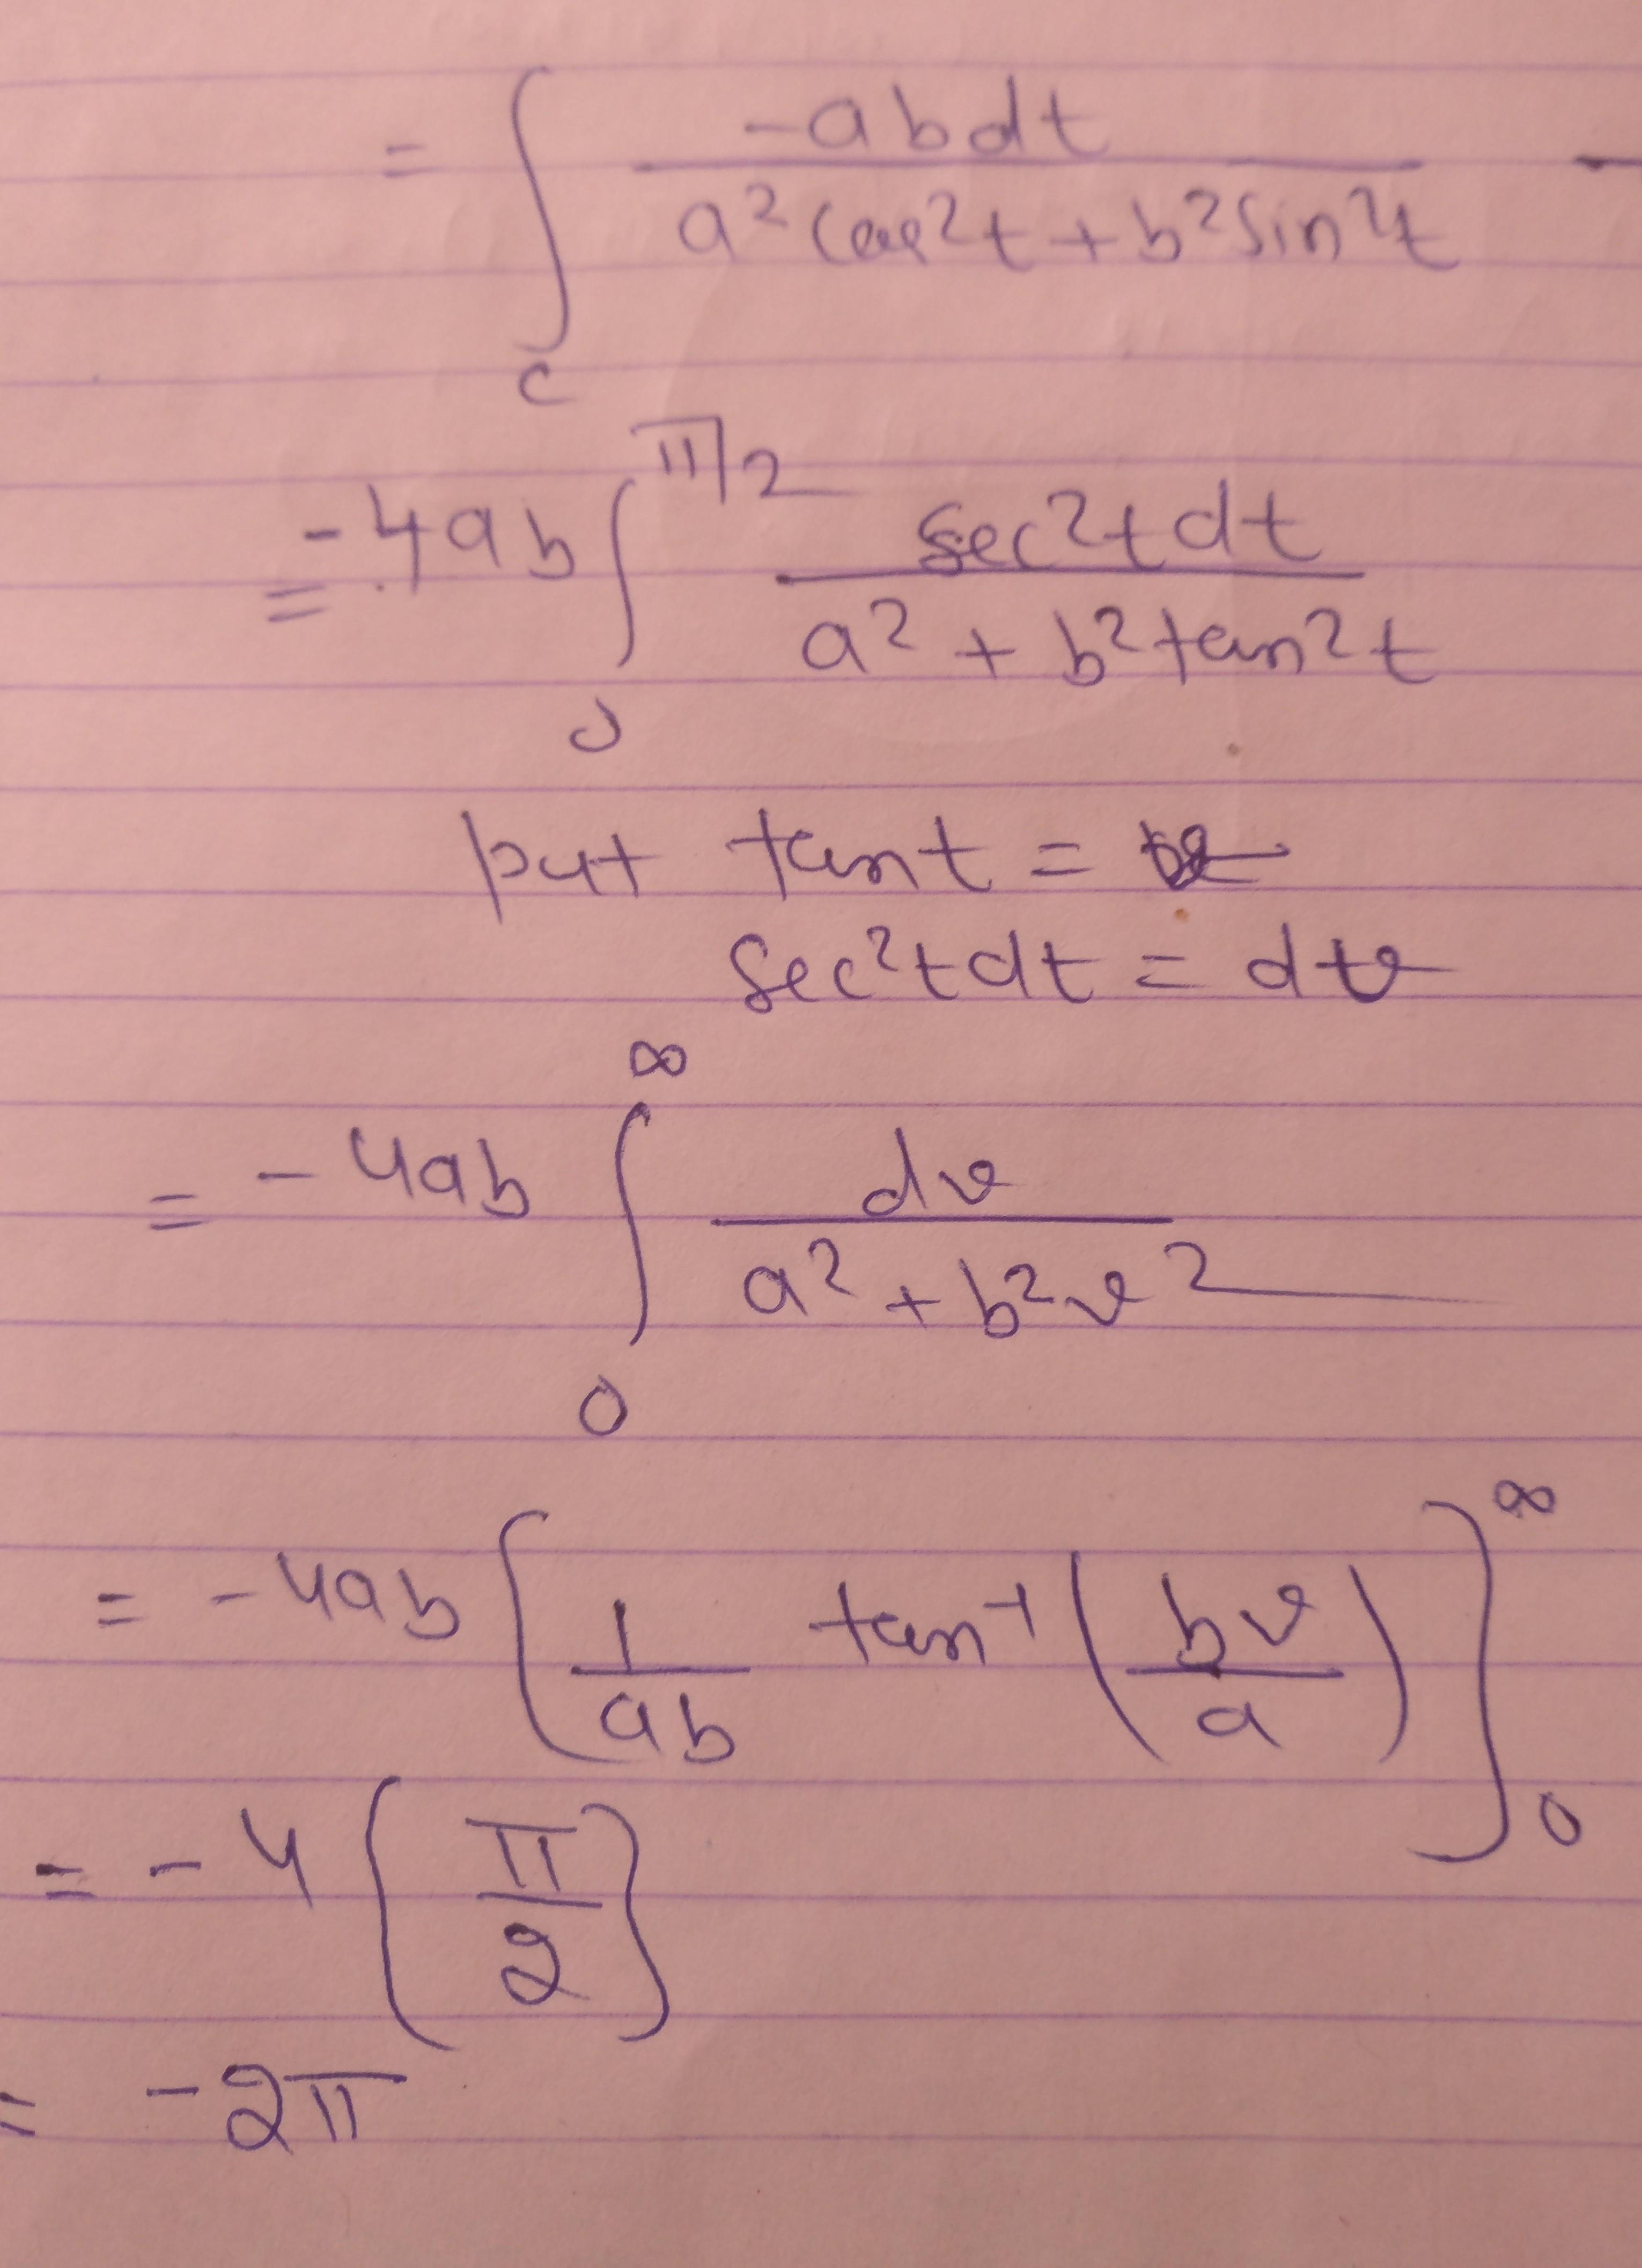 = ∫_C -abdt / (a² cos²t + b² sin²t) —
= -4ab ∫_0^{π/2} sec²t dt / (a² + b² tan²t)
put tan t = v
sec²t dt = dv
= -4ab ∫_0^∞ dv / (a² + b²v²)
= -4ab [1/ab tan⁻¹(bv/a)]_0^∞
= -4 [π/2]
= -2π